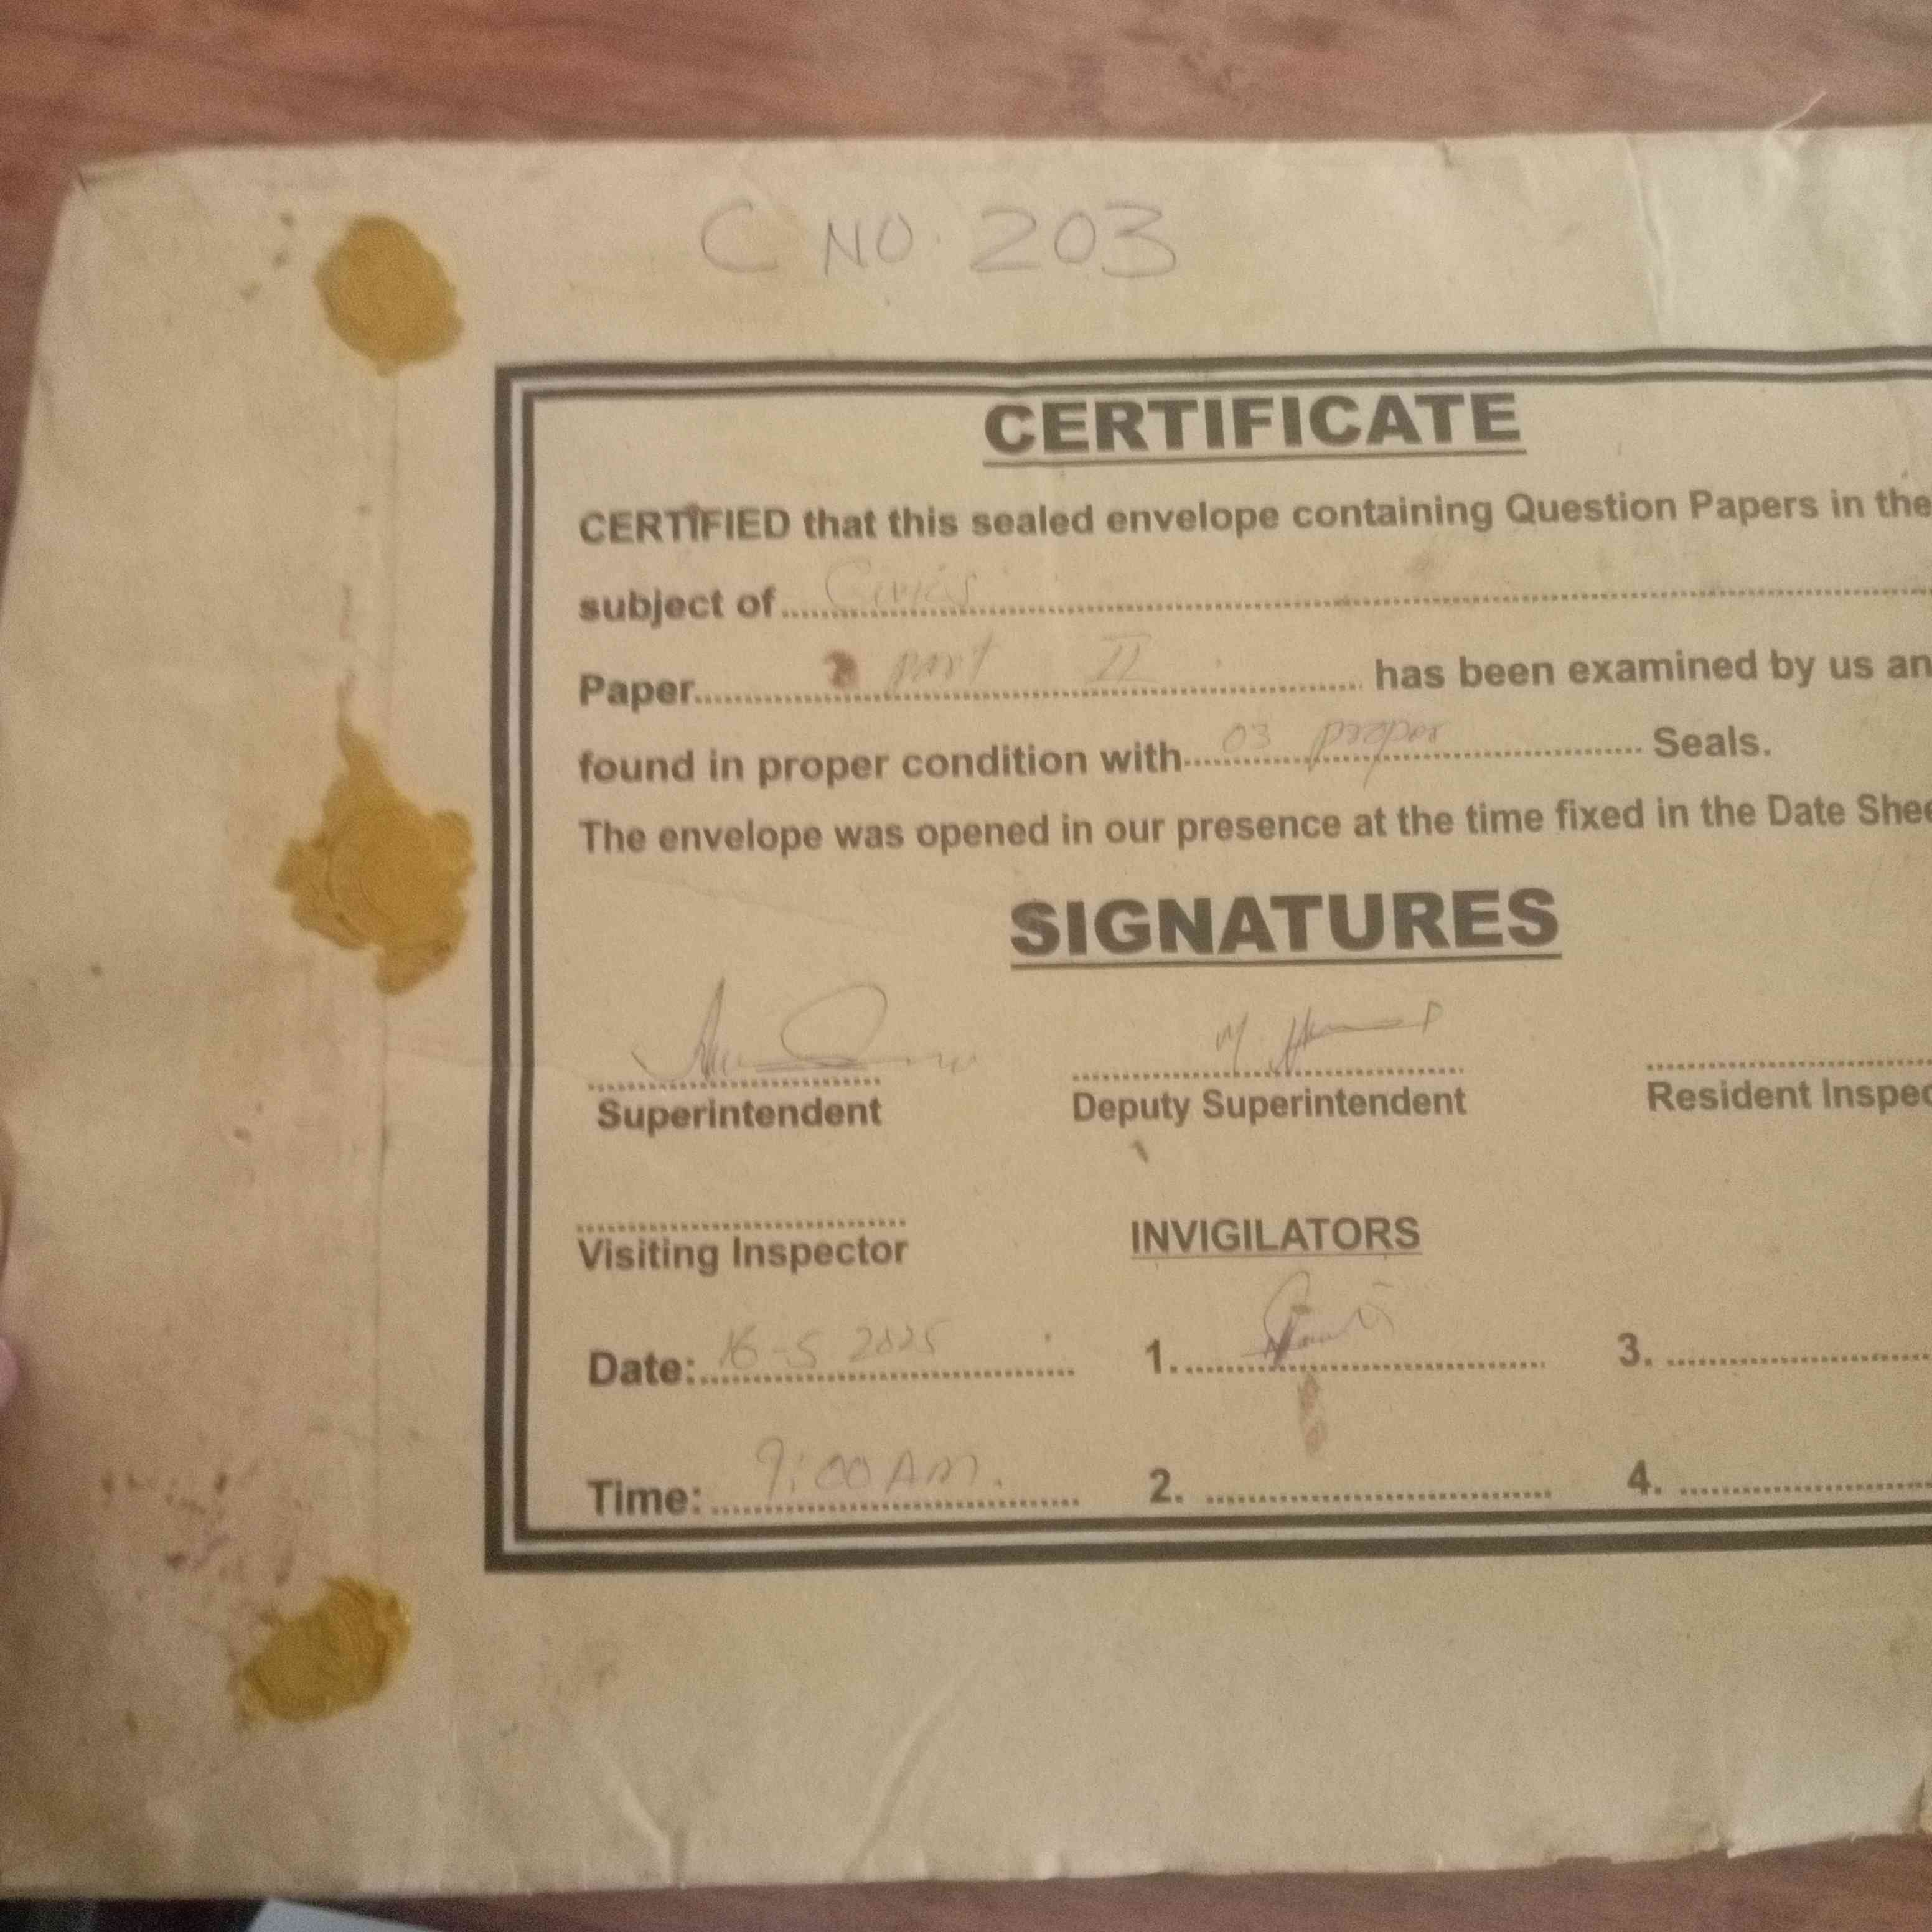 C NO. 203
CERTIFICATE
CERTIFIED that this sealed envelope containing Question Papers in the
subject of Civics
Paper part II has been examined by us an
found in proper condition with 03 proper Seals.
The envelope was opened in our presence at the time fixed in the Date Shee
SIGNATURES
Superintendent Deputy Superintendent Resident Inspec
Visiting Inspector INVIGILATORS
Date: 16-5 2025 1. 3.
Time: 9:00 AM. 2. 4.